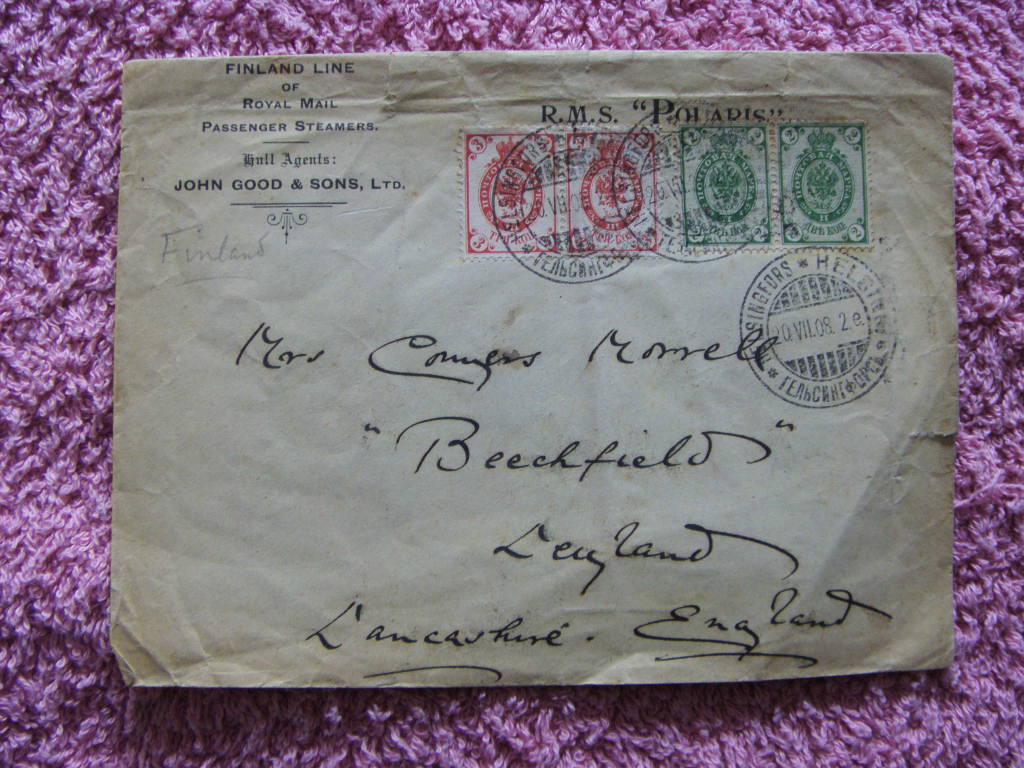 FINLAND LINE
OF
ROYAL MAIL
PASSENGER STEAMERS.
Hull Agents:
JOHN GOOD & SONS, LTD.
R.M.S. "POLARIS"
Finland
3 3 2 2
ДВѢ КОП
HELSINGFORS * HELSINKI
20.VII.08. 2.e.
* ГЕЛЬСИНГФОРСЪ *
Mrs Conyers Morrell
"Beechfield"
Leyland
Lancashire. England